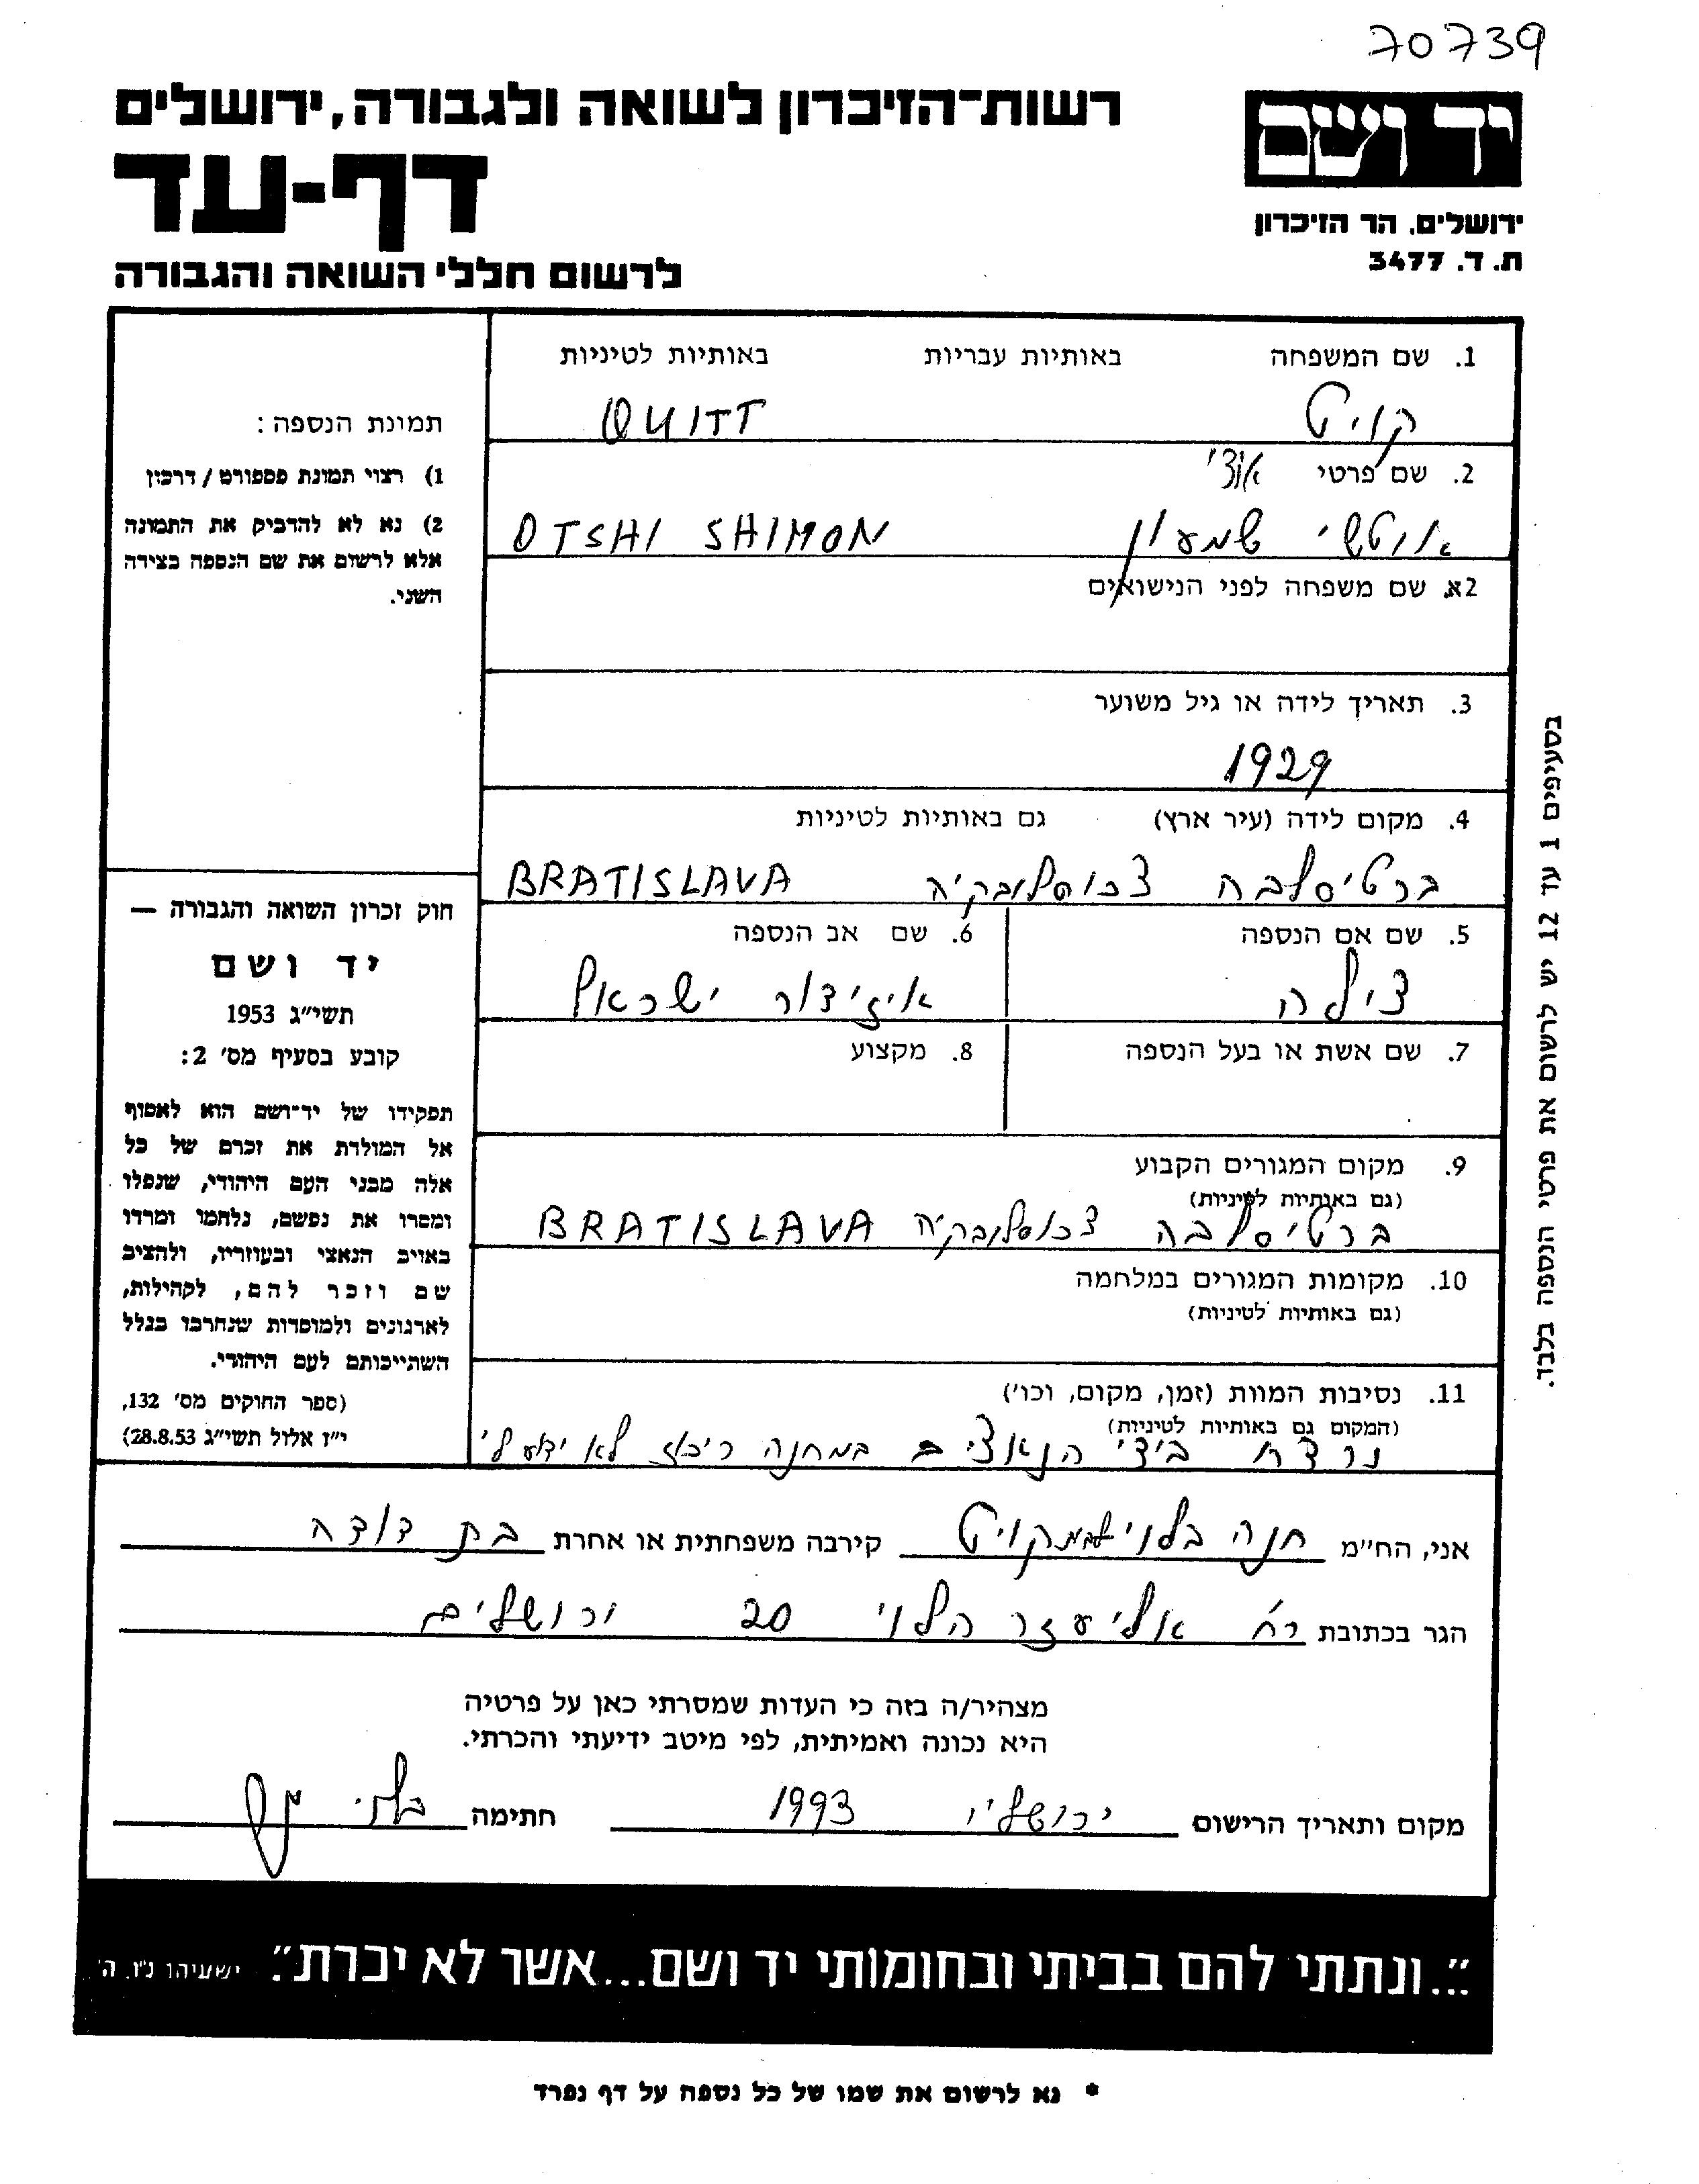 70739
רשות-הזיכרון לשואה ולגבורה, ירושלים
דף-עד
לרשום חללי השואה והגבורה
יד ושם
ירושלים. הר הזיכרון
ת. ד. 3477
1. שם המשפחה באותיות עבריות באותיות לטיניות
קויט QUITT
2. שם פרטי אוצי
אוטשי שמעון OTSHI SHIMON
2א. שם משפחה לפני הנישואים
3. תאריך לידה או גיל משוער
1929
4. מקום לידה (עיר ארץ) גם באותיות לטיניות
ברטיסלבה צכוסלובקיה BRATISLAVA
5. שם אם הנספה
צילה
6. שם אב הנספה
איזידור ישראל
7. שם אשת או בעל הנספה
8. מקצוע
9. מקום המגורים הקבוע
(גם באותיות לטיניות)
ברטיסלבה צכוסלובקיה BRATISLAVA
10. מקומות המגורים במלחמה
(גם באותיות לטיניות)
11. נסיבות המוות (זמן, מקום, וכו')
(המקום גם באותיות לטיניות)
נרצח בידי הנאצים במחנה ריכוז לא ידוע לי
תמונת הנספה:
1) רצוי תמונת פספורט / דרכון
2) נא לא להדביק את התמונה
אלא לרשום את שם הנספה בצידה
השני.
חוק זכרון השואה והגבורה —
יד ושם
תשי"ג 1953
קובע בסעיף מס' 2:
תפקידו של יד-ושם הוא לאסוף
אל המולדת את זכרם של כל
אלה מבני העם היהודי, שנפלו
ומסרו את נפשם, נלחמו ומרדו
באויב הנאצי ובעוזריו, ולהציב
שם וזכר להם, לקהילות,
לארגונים ולמוסדות שנחרבו בגלל
השתייכותם לעם היהודי.
(ספר החוקים מס' 132,
י"ז אלול תשי"ג 28.8.53)
בסעיפים 1 עד 12 יש לרשום את פרטי הנספה בלבד.
אני, הח"מ חנה בלוי לבית קויט קירבה משפחתית או אחרת בת דודה
הגר בכתובת רח' אליעזר הלוי 20 ירושלים
מצהיר/ה בזה כי העדות שמסרתי כאן על פרטיה
היא נכונה ואמיתית, לפי מיטב ידיעתי והכרתי.
מקום ותאריך הרישום ירושלים 1993 חתימה בלוי
"...ונתתי להם בביתי ובחומותי יד ושם...אשר לא יכרת". ישעיהו נ"ו. ה'
* נא לרשום את שמו של כל נספה על דף נפרד